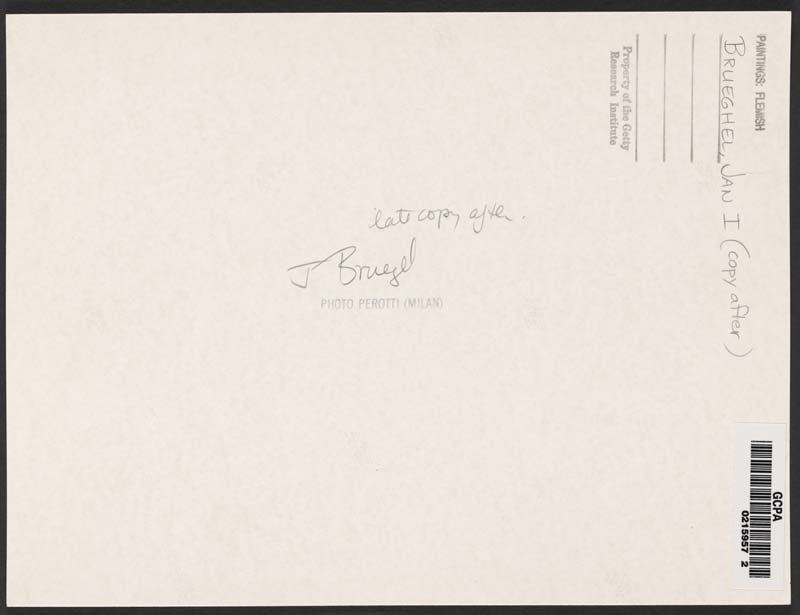 PAINTINGS: FLEMISH
BRUEGHEL, JAN I (copy after)
Property of the Getty
Research Institute
late copy after.
J Bruegel
PHOTO PEROTTI (MILAN)
GCPA
0215957 2